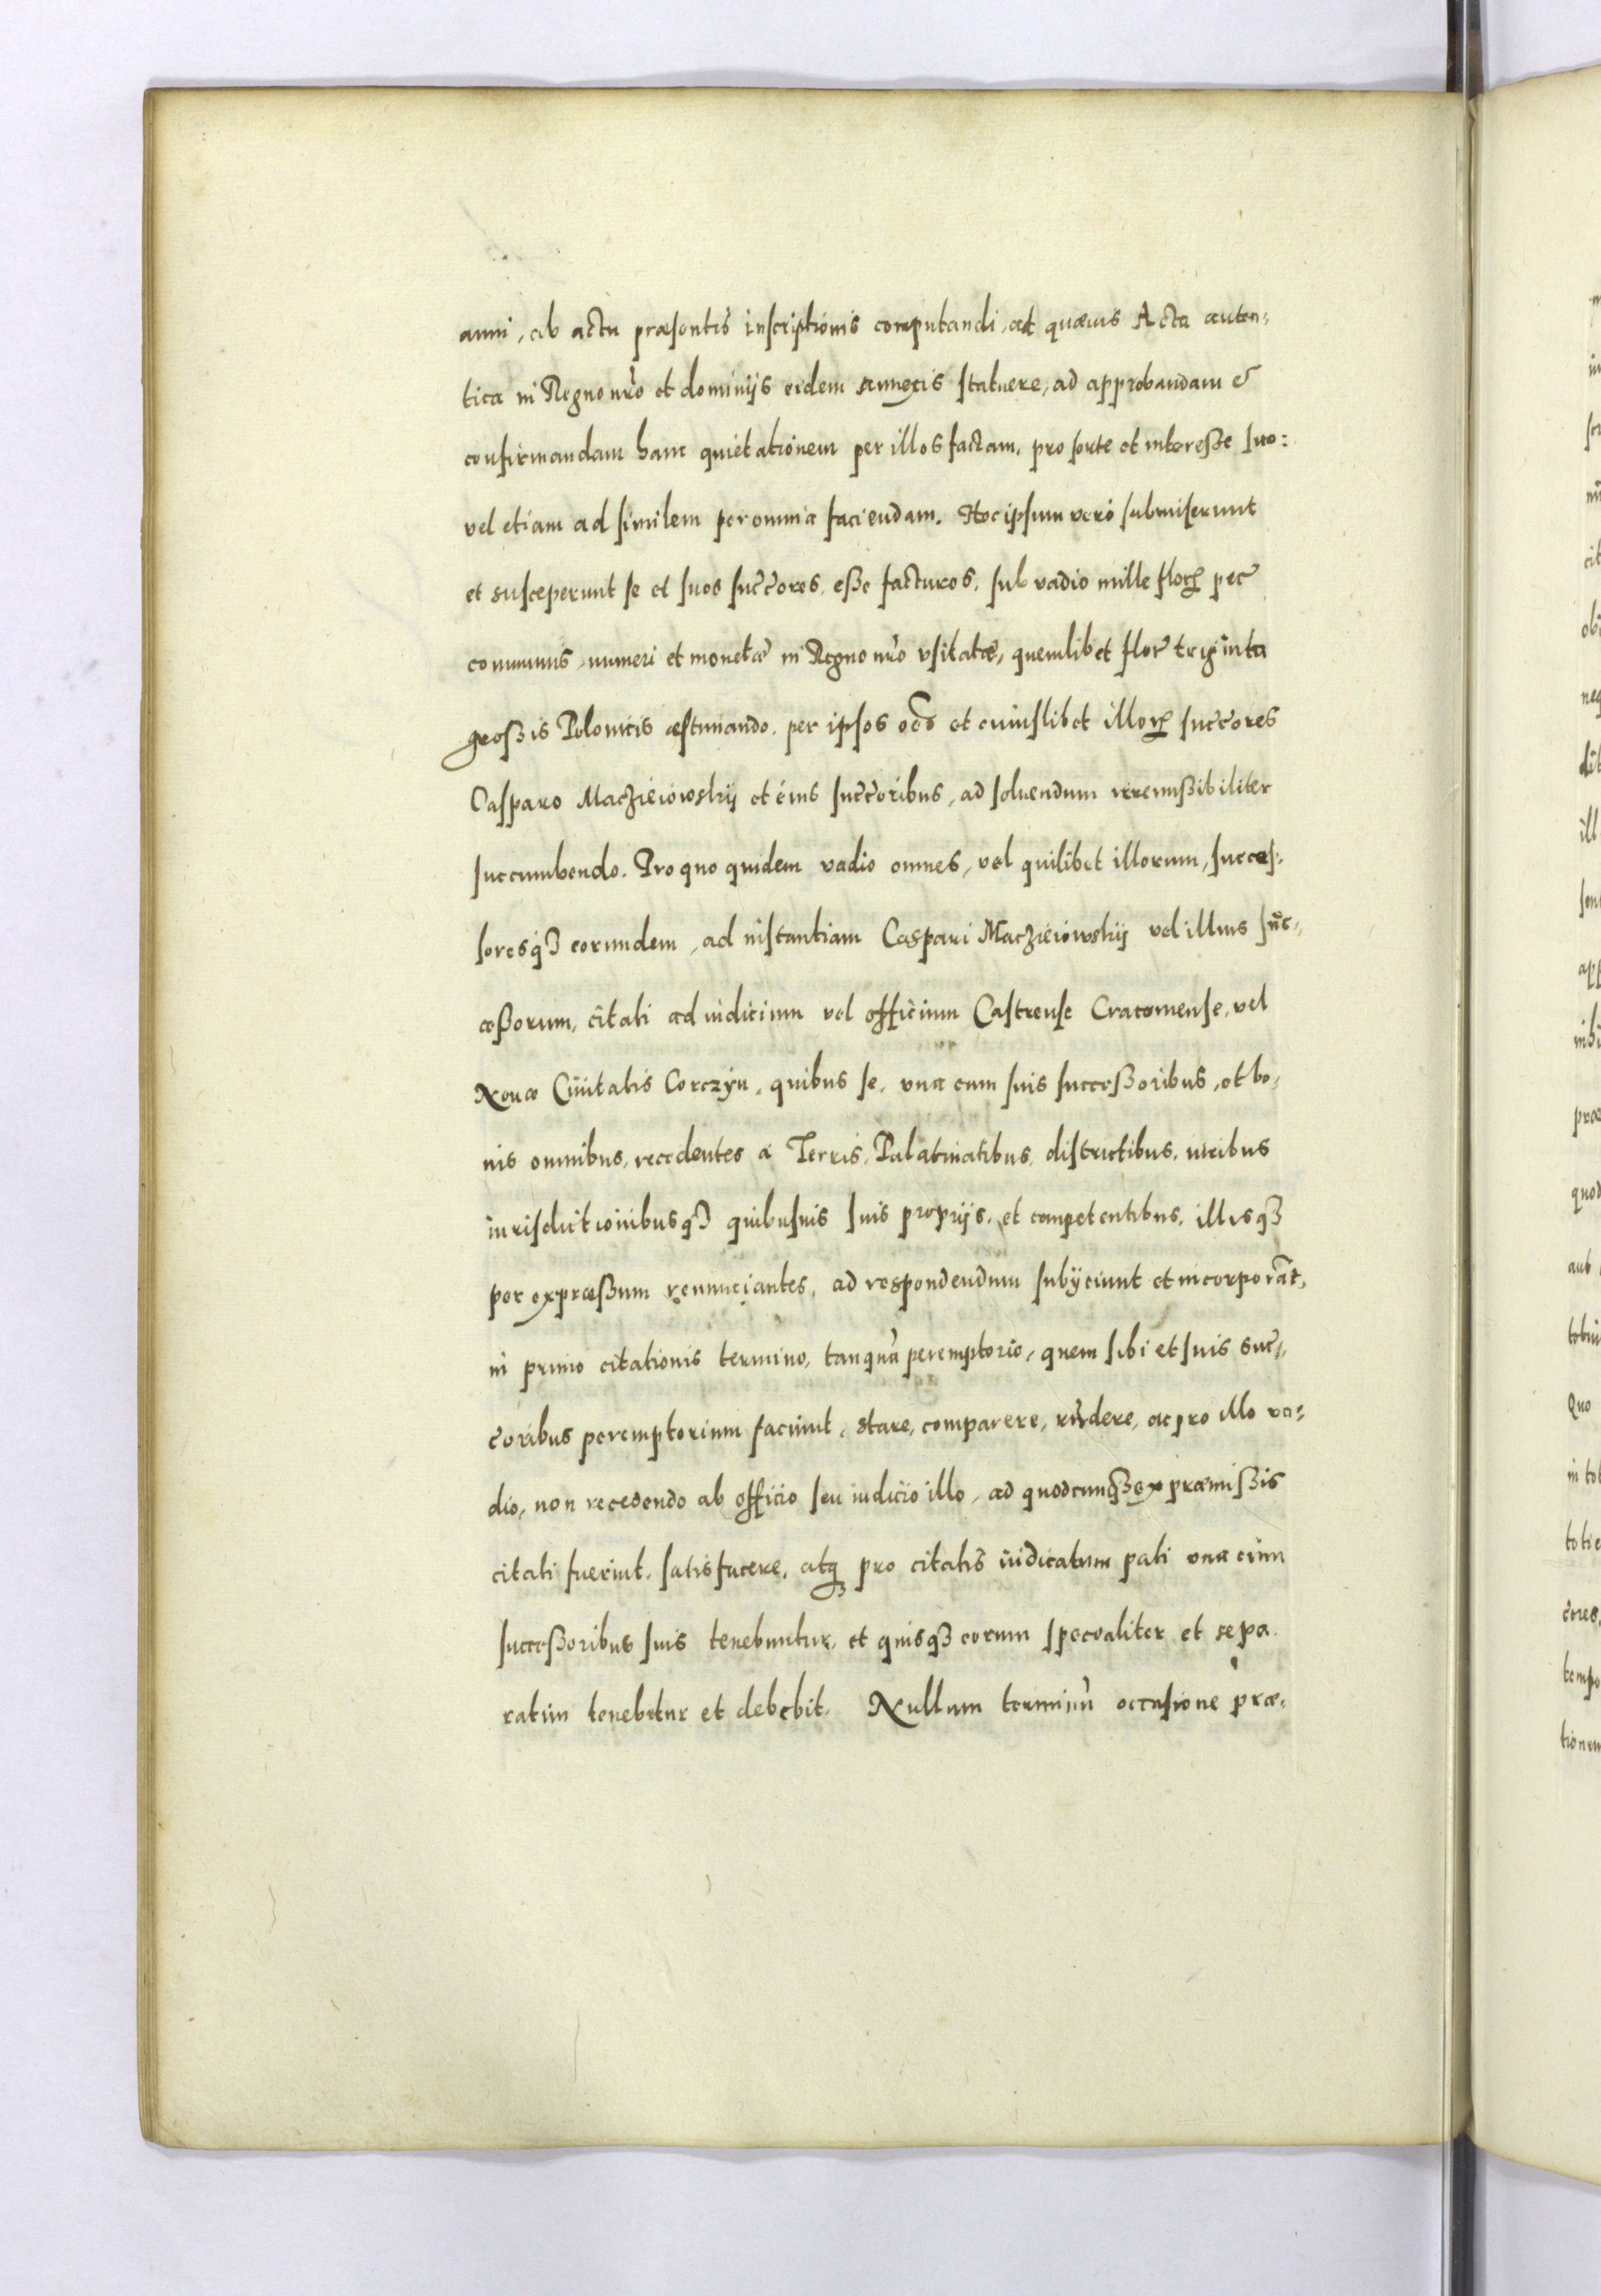 anni, ab actu præsentis inscriptionis computandi, ad quæuis Acta auten-
tica in Regno nr̃o et dominijs eidem annexis statuere, ad approbandam et
confirmandam hanc quietationem per illos factam, pro sorte et interesse suo:
vel etiam ad similem per omnia faciendam. Hoc ipsum verò submiserunt
et susceperunt se et suos succ̃ores, esse facturos, sub vadio mille floꝝ pec̃
communis, numeri et monetæ in Regno nr̃o vsitatæ, quemlibet flor̃ triginta
grossis Polonicis æstimando, per ipsos oẽs et cuiuslibet illoꝝ succ̃ores
Casparo Maczieiowskij et eius succ̃oribus, ad soluendum irremissibiliter
succumbendo. Pro quo quidem vadio omnes, vel quilibet illorum, succes-
soresqꝫ eorundem, ad instantiam Caspari Maczieiowskij vel illius suc-
cessorum, citati ad iudicium vel officium Castrense Cracouiense, vel
Nouæ Ciuitatis Corczyn, quibus se, vna cum suis successoribus, et bo-
nis omnibus, recedentes à Terris, Palatinatibus, districtibus, iuribus
iurisdictionibusqꝫ quibusuis suis proprijs, et competentibus, illisqꝫ
per expræssum renunciantes, ad respondendum subijciunt et incorporãt,
in primo citationis termino, tanquã peremptorio, quem sibi et suis suc-
c̃oribus peremptorium faciunt, stare, comparere, rñdere, ac pro illo va-
dio, non recedendo ab officio seu iudicio illo, ad quodcunqꝫ ex præmissis
citati fuerint, satisfacere, atqꝫ pro citatis iudicatum pati vna cum
successoribus suis tenebuntur, et quisqꝫ eorum specialiter et sepa
ratim tenebitur et debebit. Nullum terminũ occasione præ-